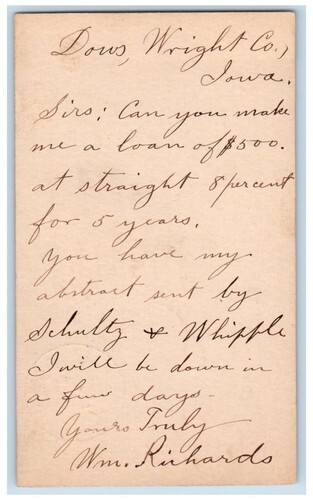 Dows, Wright Co.,
Iowa.
Sirs: Can you make
me a loan of $500.
at straight 8 percent
for 5 years.
You have my
abstract sent by
Schultz & Whipple
I will be down in
a few days-
Yours Truly
Wm. Richards